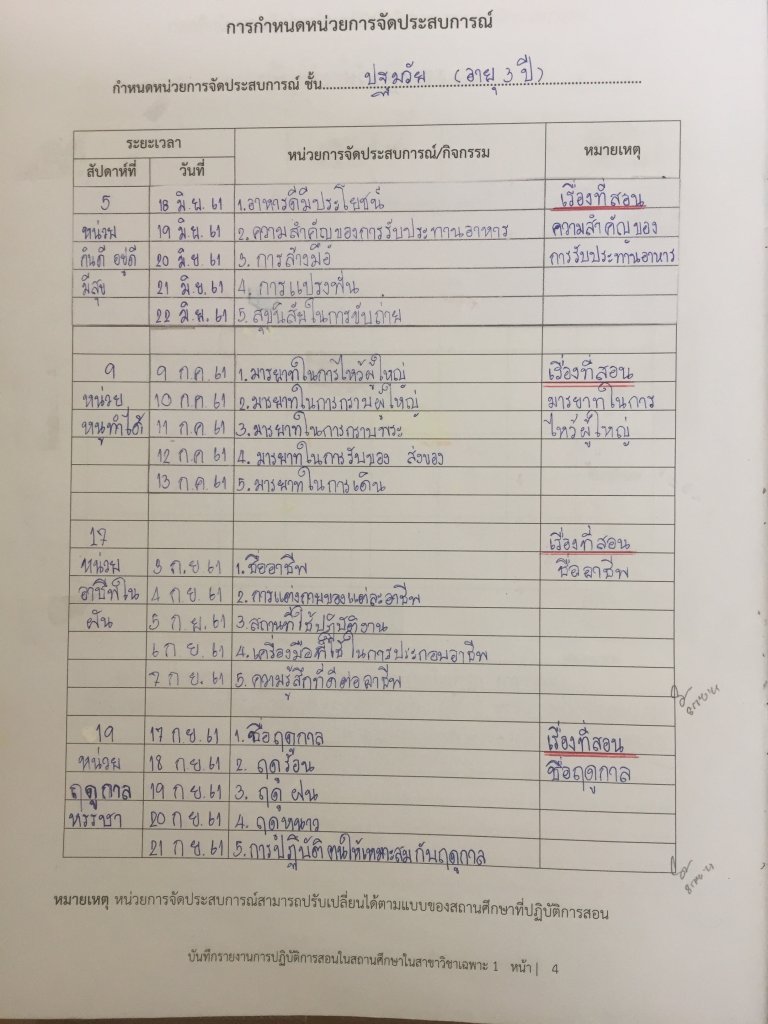 การกำหนดหน่วยการจัดประสบการณ์
กำหนดหน่วยการจัดประสบการณ์ ชั้น ปฐมวัย (อายุ 3 ปี)
ระยะเวลา หน่วยการจัดประสบการณ์/กิจกรรม หมายเหตุ
สัปดาห์ที่ วันที่
5 18 มิ.ย. 61 1.อาหารดีมีประโยชน์ เรื่องที่สอน
หน่วย 19 มิ.ย. 61 2.ความสำคัญของการรับประทานอาหาร ความสำคัญของ
กินดี อยู่ดี 20 มิ.ย. 61 3. การล้างมือ การรับประทานอาหาร
มีสุข 21 มิ.ย. 61 4. การแปรงฟัน
22 มิ.ย. 61 5. สุขนิสัยในการขับถ่าย
9 9 ก.ค. 61 1.มารยาทในการไหว้ผู้ใหญ่ เรื่องที่สอน
หน่วย 10 ก.ค. 61 2.มารยาทในการกราบผู้ใหญ่ มารยาทในการ
หนูทำได้ 11 ก.ค. 61 3.มารยาทในการกราบพระ ไหว้ผู้ใหญ่
12 ก.ค. 61 4. มารยาทในการรับของ ส่งของ
13 ก.ค. 61 5.มารยาทในการเดิน
17 เรื่องที่สอน
หน่วย 3 ก.ย. 61 1.ชื่ออาชีพ ชื่ออาชีพ
อาชีพใน 4 ก.ย. 61 2. การแต่งกายของแต่ละอาชีพ
ฝัน 5 ก.ย. 61 3.สถานที่ใช้ปฏิบัติงาน
6 ก.ย. 61 4.เครื่องมือที่ใช้ในการประกอบอาชีพ
7 ก.ย. 61 5.ความรู้สึกที่ดีต่ออาชีพ
19 17 ก.ย. 61 1.ชื่อฤดูกาล เรื่องที่สอน
หน่วย 18 ก.ย. 61 2. ฤดูร้อน ชื่อฤดูกาล
ฤดูกาล 19 ก.ย. 61 3. ฤดูฝน
หรรษา 20 ก.ย. 61 4. ฤดูหนาว
21 ก.ย. 61 5.การปฏิบัติตนให้เหมาะสมกับฤดูกาล
หมายเหตุ หน่วยการจัดประสบการณ์สามารถปรับเปลี่ยนได้ตามแบบของสถานศึกษาที่ปฏิบัติการสอน
บันทึกรายงานการปฏิบัติการสอนในสถานศึกษาในสาขาวิชาเฉพาะ 1 หน้า | 4